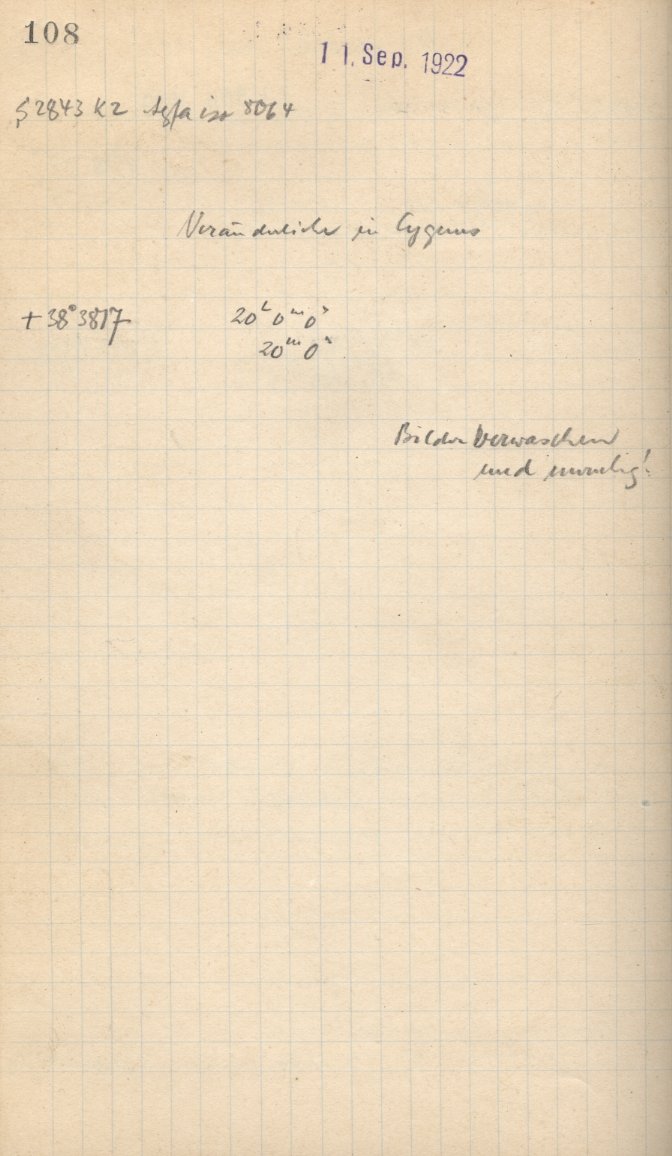 108
11. Sep. 1922
S 2843 K2 Agfa iso 8064
Veränderliche in Cygnus
+38°3817 20ʰ 0ᵐ 0ˢ
20ᵐ 0ˢ
Bilder verwaschen
und unruhig!